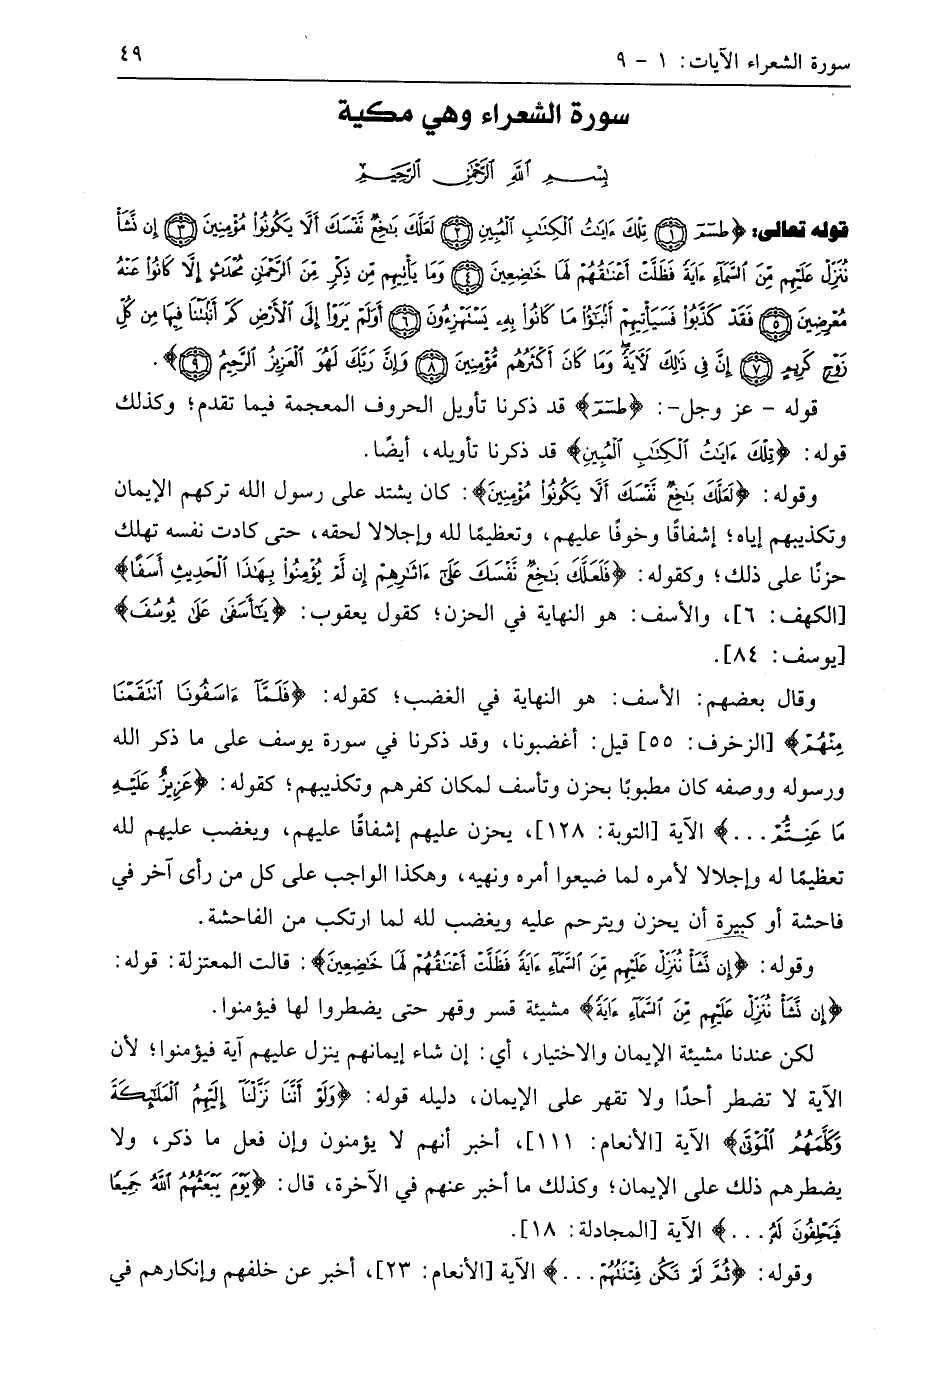 سورة الشعراء الآيات: ١ - ٩
٤٩
سورة الشعراء وهي مكية
بِسْمِ اللَّهِ الرَّحْمَٰنِ الرَّحِيمِ
قوله تعالى: ﴿طسٓمٓ ﴿١﴾ تِلْكَ ءَايَٰتُ ٱلْكِتَٰبِ ٱلْمُبِينِ ﴿٢﴾ لَعَلَّكَ بَٰخِعٌ نَّفْسَكَ أَلَّا يَكُونُوا۟ مُؤْمِنِينَ ﴿٣﴾ إِن نَّشَأْ
نُنَزِّلْ عَلَيْهِم مِّنَ ٱلسَّمَآءِ ءَايَةً فَظَلَّتْ أَعْنَٰقُهُمْ لَهَا خَٰضِعِينَ ﴿٤﴾ وَمَا يَأْتِيهِم مِّن ذِكْرٍ مِّنَ ٱلرَّحْمَٰنِ مُحْدَثٍ إِلَّا كَانُوا۟ عَنْهُ
مُعْرِضِينَ ﴿٥﴾ فَقَدْ كَذَّبُوا۟ فَسَيَأْتِيهِمْ أَنۢبَٰٓؤُا۟ مَا كَانُوا۟ بِهِۦ يَسْتَهْزِءُونَ ﴿٦﴾ أَوَلَمْ يَرَوْا۟ إِلَى ٱلْأَرْضِ كَمْ أَنۢبَتْنَا فِيهَا مِن كُلِّ
زَوْجٍ كَرِيمٍ ﴿٧﴾ إِنَّ فِى ذَٰلِكَ لَءَايَةً وَمَا كَانَ أَكْثَرُهُم مُّؤْمِنِينَ ﴿٨﴾ وَإِنَّ رَبَّكَ لَهُوَ ٱلْعَزِيزُ ٱلرَّحِيمُ ﴿٩﴾﴾.
قوله - عز وجل-: ﴿طسٓمٓ﴾ قد ذكرنا تأويل الحروف المعجمة فيما تقدم؛ وكذلك
قوله: ﴿تِلْكَ ءَايَٰتُ ٱلْكِتَٰبِ ٱلْمُبِينِ﴾ قد ذكرنا تأويله، أيضًا.
وقوله: ﴿لَعَلَّكَ بَٰخِعٌ نَّفْسَكَ أَلَّا يَكُونُوا۟ مُؤْمِنِينَ﴾: كان يشتد على رسول الله تركهم الإيمان
وتكذيبهم إياه؛ إشفاقًا وخوفًا عليهم، وتعظيمًا لله وإجلالا لحقه، حتى كادت نفسه تهلك
حزنًا على ذلك؛ وكقوله: ﴿فَلَعَلَّكَ بَٰخِعٌ نَّفْسَكَ عَلَىٰٓ ءَاثَٰرِهِمْ إِن لَّمْ يُؤْمِنُوا۟ بِهَٰذَا ٱلْحَدِيثِ أَسَفًا﴾
[الكهف: ٦]، والأسف: هو النهاية في الحزن؛ كقول يعقوب: ﴿يَٰٓأَسَفَىٰ عَلَىٰ يُوسُفَ﴾
[يوسف: ٨٤].
وقال بعضهم: الأسف: هو النهاية في الغضب؛ كقوله: ﴿فَلَمَّآ ءَاسَفُونَا ٱنتَقَمْنَا
مِنْهُمْ﴾ [الزخرف: ٥٥] قيل: أغضبونا، وقد ذكرنا في سورة يوسف على ما ذكر الله
ورسوله ووصفه كان مطبوبًا بحزن وتأسف لمكان كفرهم وتكذيبهم؛ كقوله: ﴿عَزِيزٌ عَلَيْهِ
مَا عَنِتُّمْ...﴾ الآية [التوبة: ١٢٨]، يحزن عليهم إشفاقًا عليهم، ويغضب عليهم لله
تعظيمًا له وإجلالا لأمره لما ضيعوا أمره ونهيه، وهكذا الواجب على كل من رأى آخر في
فاحشة أو كبيرة أن يحزن ويترحم عليه ويغضب لله لما ارتكب من الفاحشة.
وقوله: ﴿إِن نَّشَأْ نُنَزِّلْ عَلَيْهِم مِّنَ ٱلسَّمَآءِ ءَايَةً فَظَلَّتْ أَعْنَٰقُهُمْ لَهَا خَٰضِعِينَ﴾: قالت المعتزلة: قوله:
﴿إِن نَّشَأْ نُنَزِّلْ عَلَيْهِم مِّنَ ٱلسَّمَآءِ ءَايَةً﴾ مشيئة قسر وقهر حتى يضطروا لها فيؤمنوا.
لكن عندنا مشيئة الإيمان والاختيار، أي: إن شاء إيمانهم ينزل عليهم آية فيؤمنوا؛ لأن
الآية لا تضطر أحدًا ولا تقهر على الإيمان، دليله قوله: ﴿وَلَوْ أَنَّنَا نَزَّلْنَآ إِلَيْهِمُ ٱلْمَلَٰٓئِكَةَ
وَكَلَّمَهُمُ ٱلْمَوْتَىٰ﴾ الآية [الأنعام: ١١١]، أخبر أنهم لا يؤمنون وإن فعل ما ذكر، ولا
يضطرهم ذلك على الإيمان؛ وكذلك ما أخبر عنهم في الآخرة، قال: ﴿يَوْمَ يَبْعَثُهُمُ ٱللَّهُ جَمِيعًا
فَيَحْلِفُونَ لَهُۥ...﴾ الآية [المجادلة: ١٨].
وقوله: ﴿ثُمَّ لَمْ تَكُن فِتْنَتُهُمْ...﴾ الآية [الأنعام: ٢٣]، أخبر عن خلفهم وإنكارهم في